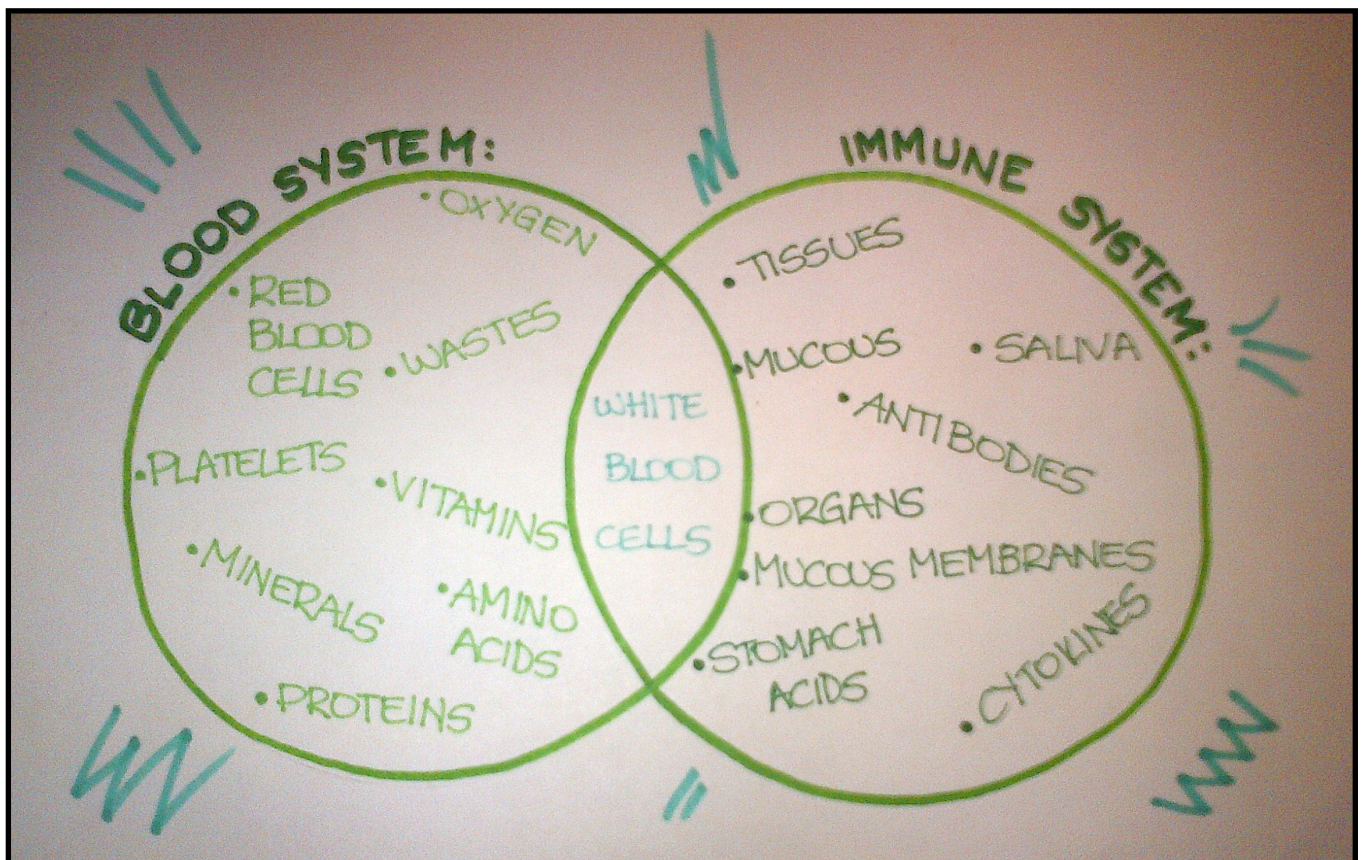 BLOOD SYSTEM:
• OXYGEN
• RED
BLOOD
CELLS
• WASTES
• PLATELETS
• VITAMINS
• MINERALS
• AMINO
ACIDS
• PROTEINS
WHITE
BLOOD
CELLS
IMMUNE SYSTEM:
• TISSUES
• MUCOUS
• SALIVA
• ANTIBODIES
• ORGANS
• MUCOUS MEMBRANES
• STOMACH
ACIDS
• CYTOKINES